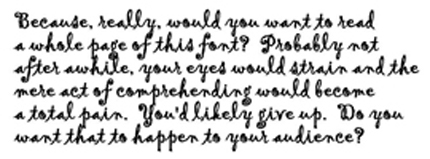 Because, really, would you want to read
a whole page of this font? Probably not
after awhile, your eyes would strain and the
mere act of comprehending would become
a total pain. You'd likely give up. Do you
want that to happen to your audience?